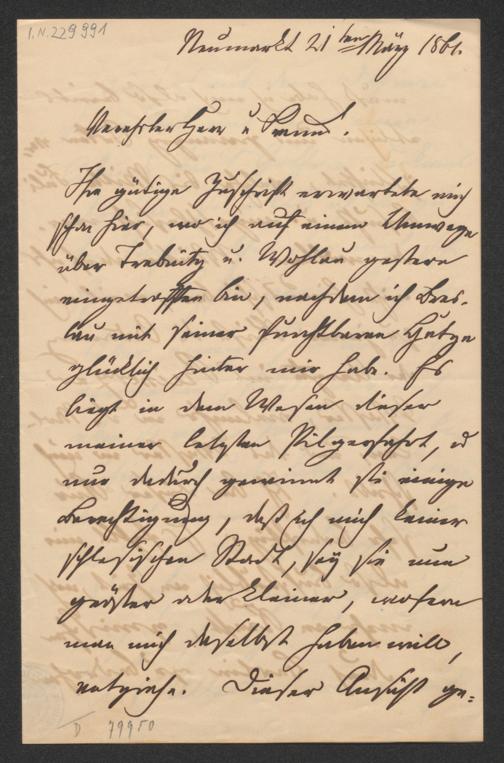 I.N. 229991
Neumarkt 21 ten März 1861.
Verehrter Herr u Freund!
Ihre gütige Zuschrift erwartete mich
schon hier, wo ich auf einem Umwege
über Trebnitz u. Wohlau gestern
eingetroffen bin, nachdem ich Bres-
lau mit seiner furchtbaren Hetze
glücklich hinter mir habe. Es
liegt in dem Wesen dieser
meiner letzten Pilgerfahrt, u
nur dadurch gewinnt sie einige
Berechtigung, daß ich mich keiner
schlesischen Stadt, sey sie nun
größer oder kleiner, wofern
man mich daselbst haben will,
entziehe. Dieser Ansicht ge=
D 79950